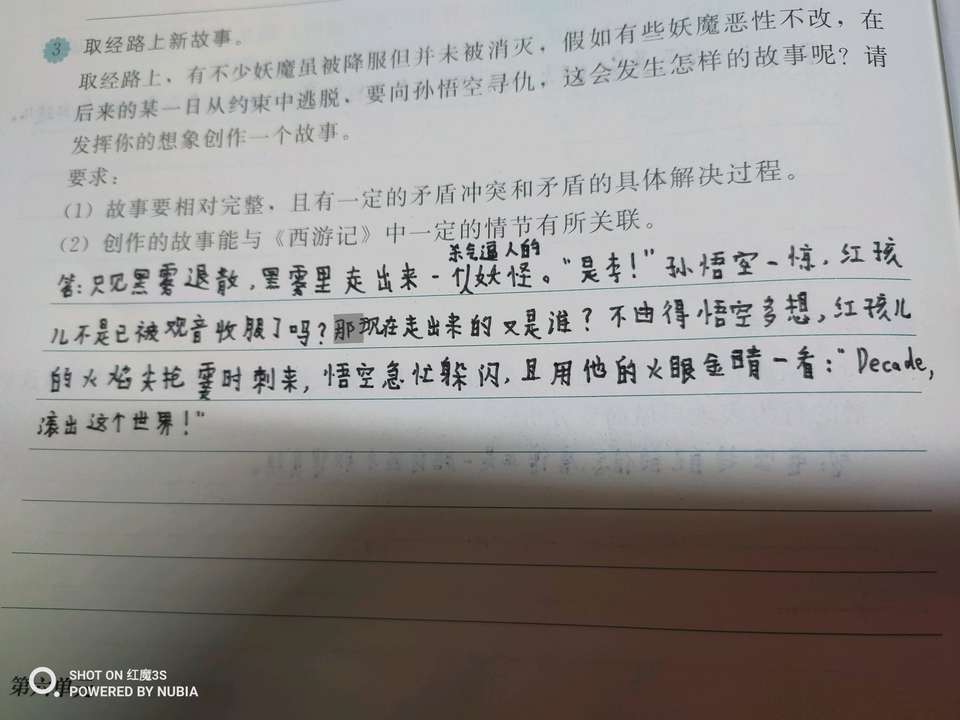 3 取经路上新故事。
取经路上、有不少妖魔虽被降服但并未被消灭，假如有些妖魔恶性不改，在
后来的某一日从约束中逃脱、要向孙悟空寻仇，这会发生怎样的故事呢？请
发挥你的想象创作一个故事。
要求：
（1）故事要相对完整，且有一定的矛盾冲突和矛盾的具体解决过程。
（2）创作的故事能与《西游记》中一定的情节有所关联。
杀气逼人的
答：只见黑雾退散，黑雾里走出来一个妖怪。“是李！”孙悟空一惊，红孩
儿不是已被观音收服了吗？那现在走出来的又是谁？不由得悟空多想，红孩儿
的火焰尖枪霎时刺来，悟空急忙躲闪，且用他的火眼金睛一看：“Decade，
滚出这个世界！”
SHOT ON 红魔3S
POWERED BY NUBIA